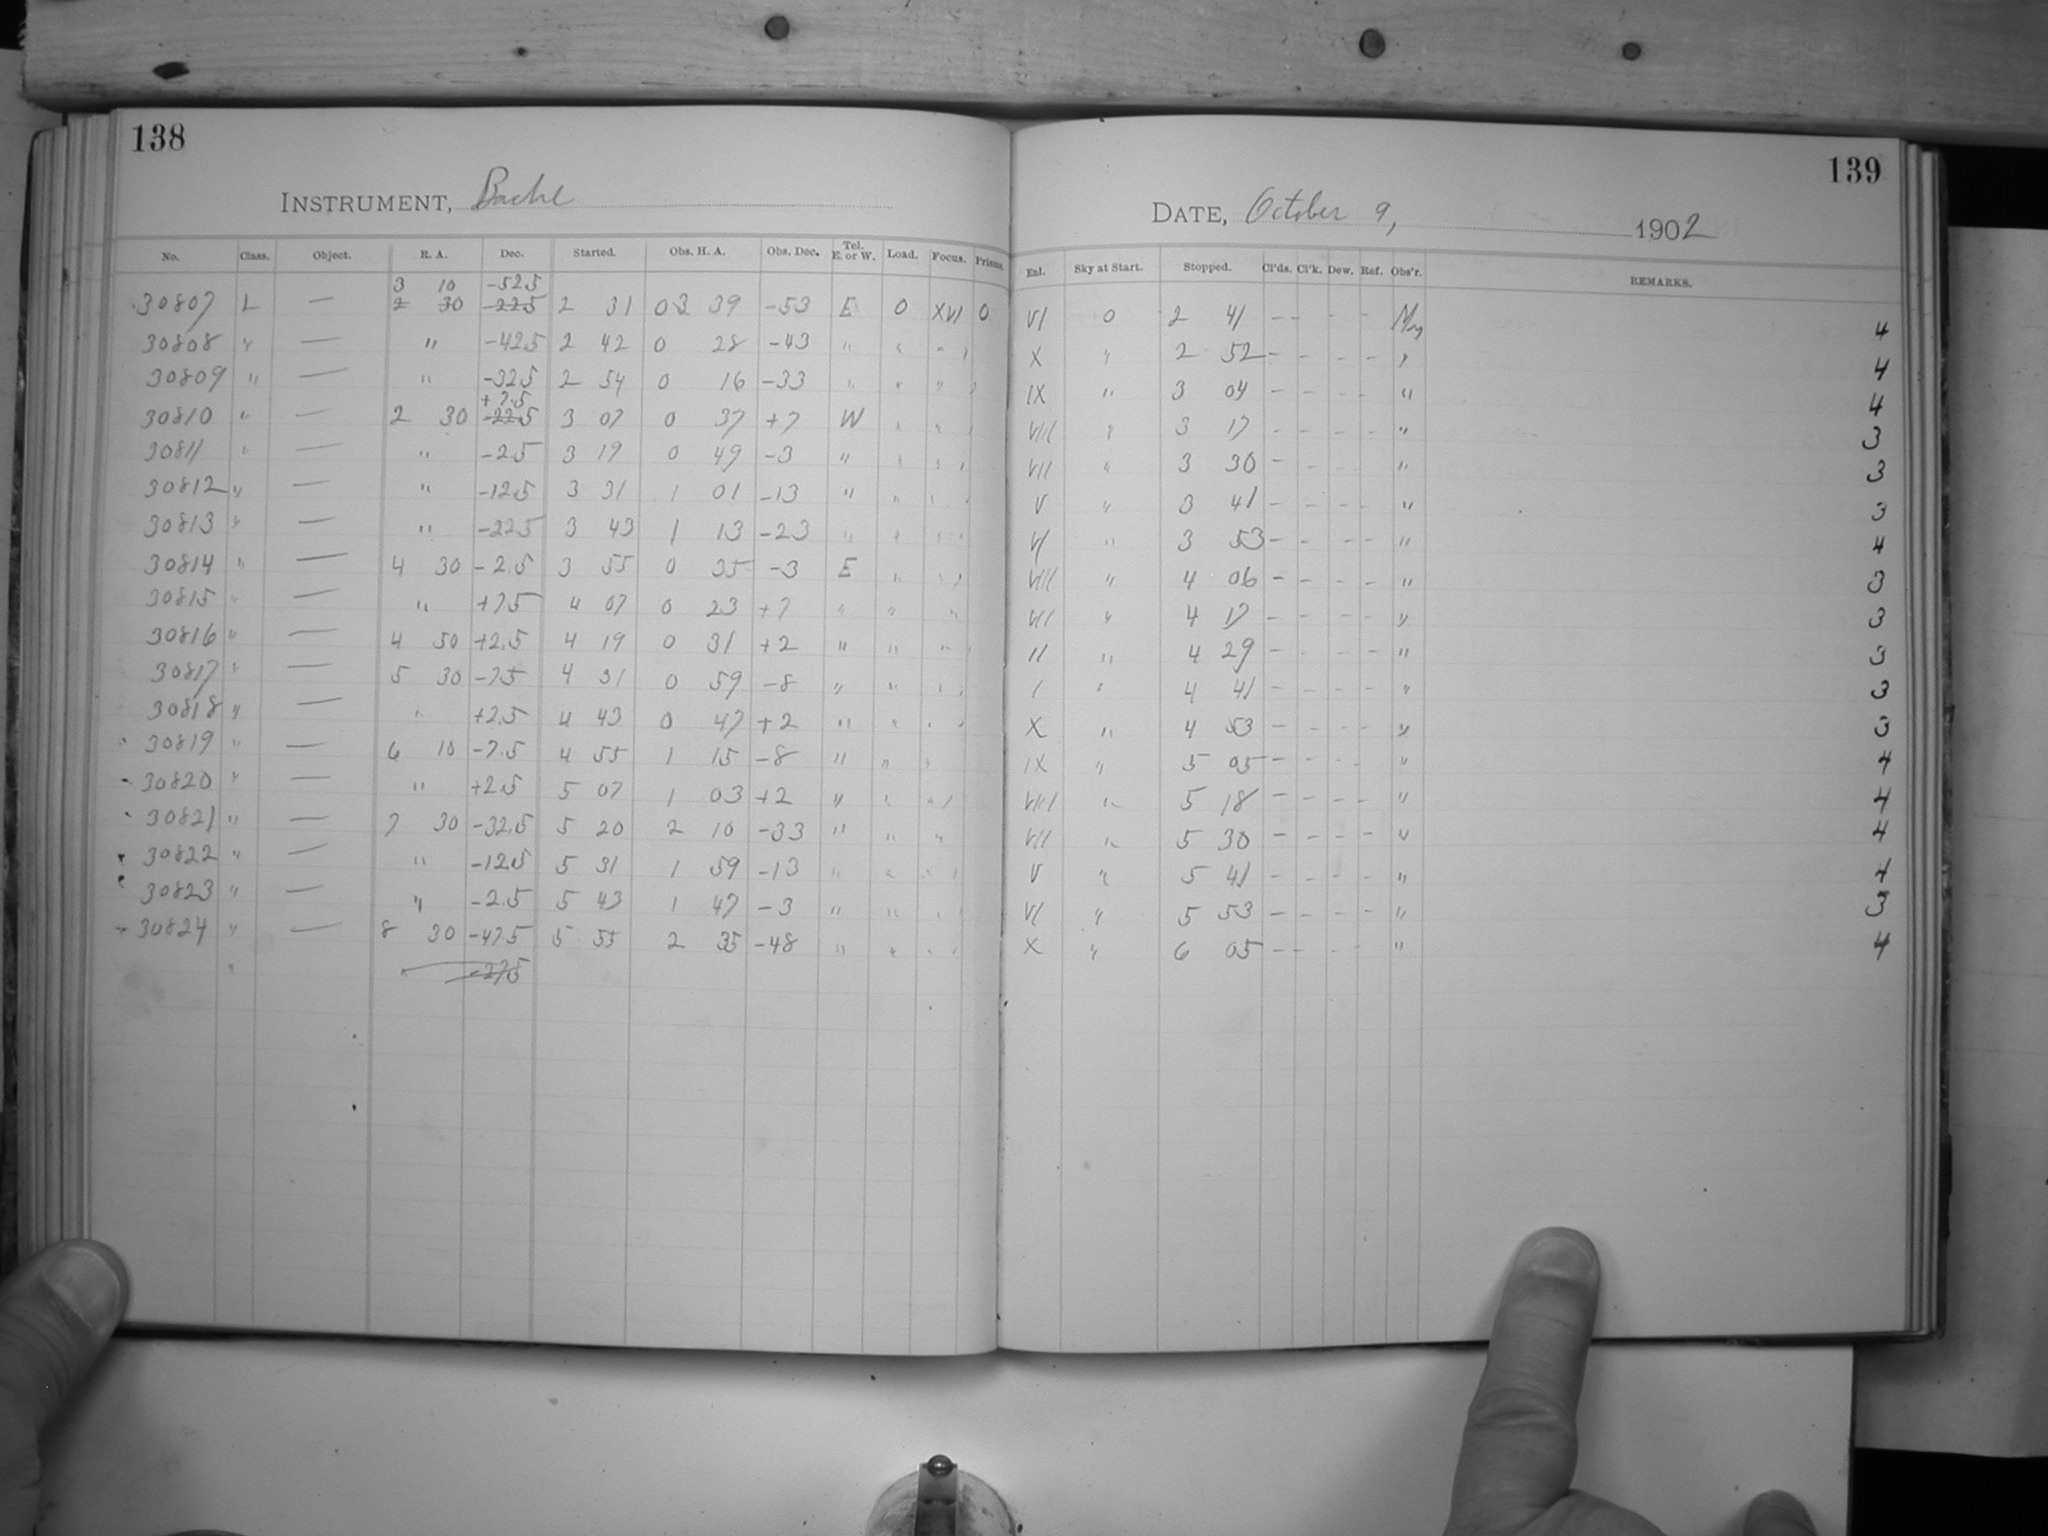 138
INSTRUMENT, Bache
No. Class. Object. R. A. Dec. Started. Obs. H. A. Obs. Dec. Tel. E. or W. Load. Focus. Prisms.
3 10 -52.5
30807 L — 2 30 -22.5 2 31 03 39 -53 E 0 XVI 0
30808 " — " -42.5 2 42 0 28 -43 " " " "
30809 " — " -32.5 2 54 0 16 -33 " " " "
+7.5
30810 " — 2 30 -22.5 3 07 0 37 +7 W " " "
30811 " — " -2.5 3 19 0 49 -3 " " " "
30812 " — " -12.5 3 31 1 01 -13 " " " "
30813 " — " -22.5 3 43 1 13 -23 " " " "
30814 " — 4 30 -2.5 3 55 0 35 -3 E " " "
30815 " — " +7.5 4 07 0 23 +7 " " "
30816 " — 4 50 +2.5 4 19 0 31 +2 " " " "
30817 " — 5 30 -7.5 4 31 0 59 -8 " " " "
30818 " — " +2.5 4 43 0 47 +2 " " " "
30819 " — 6 10 -7.5 4 55 1 15 -8 " " "
30820 " — " +2.5 5 07 1 03 +2 " " " "
30821 " — 7 30 -32.5 5 20 2 10 -33 " " "
30822 " — " -12.5 5 31 1 59 -13 " " " "
30823 " — " -2.5 5 43 1 47 -3 " " " "
30824 " — 8 30 -47.5 5 55 2 35 -48 " " " "
" " -27.5
139
DATE, October 9, 1902
Enl. Sky at Start. Stopped. Cl'ds. Cl'k. Dew. Ref. Obs'r. REMARKS.
VI 0 2 41 - - - - 4
X " 2 52 - - - - " 4
IX " 3 04 - - - - " 4
VIII " 3 17 - - - - " 3
VII " 3 30 - - - - " 3
V " 3 41 - - - - " 3
VI " 3 53 - - - - " 4
VIII " 4 06 - - - - " 3
VII " 4 17 - - - - " 3
II " 4 29 - - - - " 3
I " 4 41 - - - - " 3
X " 4 53 - - - - " 3
IX " 5 05 - - - - " 4
VIII " 5 18 - - - - " 4
VII " 5 30 - - - - " 4
V " 5 41 - - - - " 4
VI " 5 53 - - - - " 3
X " 6 05 - - - - " 4